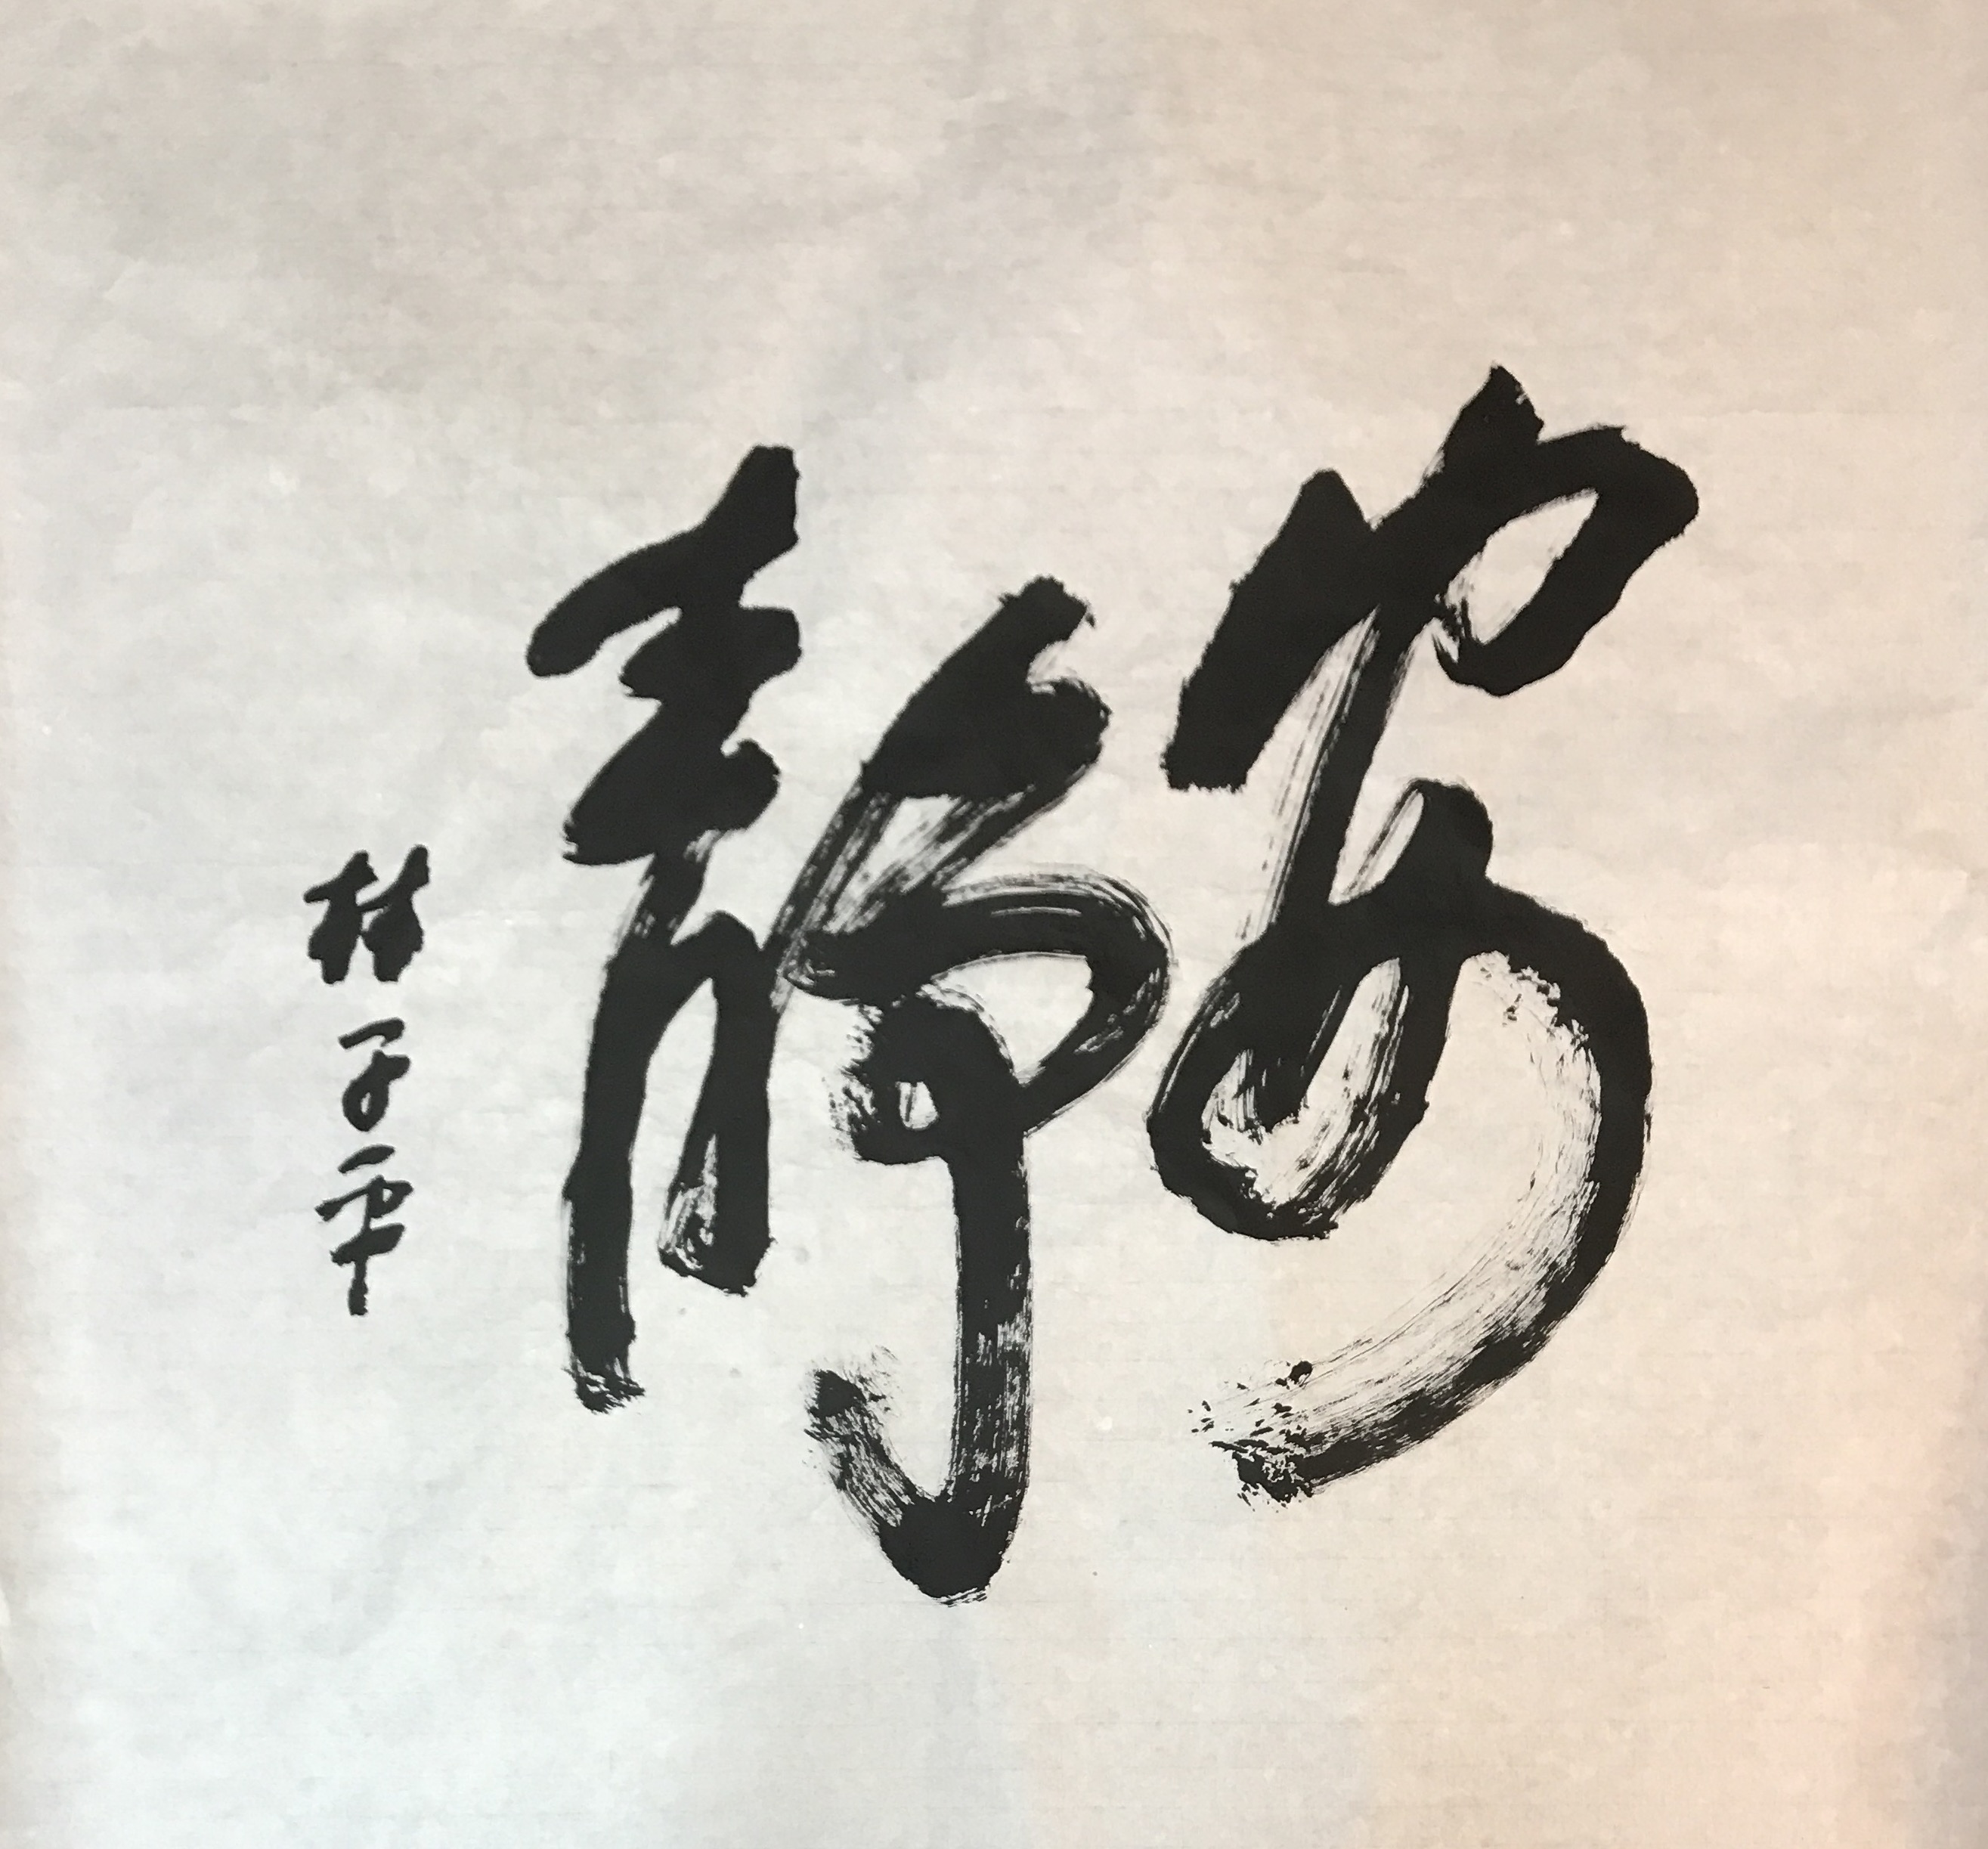 安静
林子平